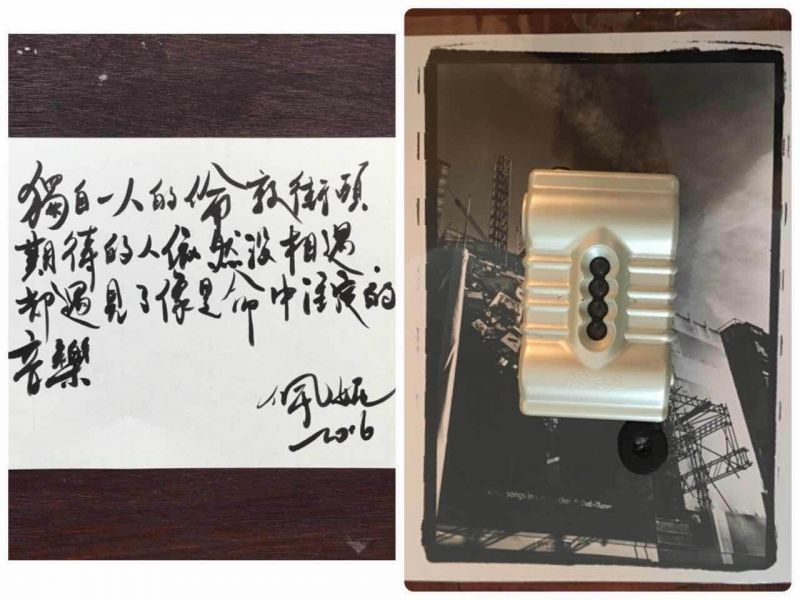 獨自一人的倫敦街頭
期待的人依然沒相遇
卻遇見了像是命中注定的
音樂
佩妮
2016
songs in
iPod+iTunes